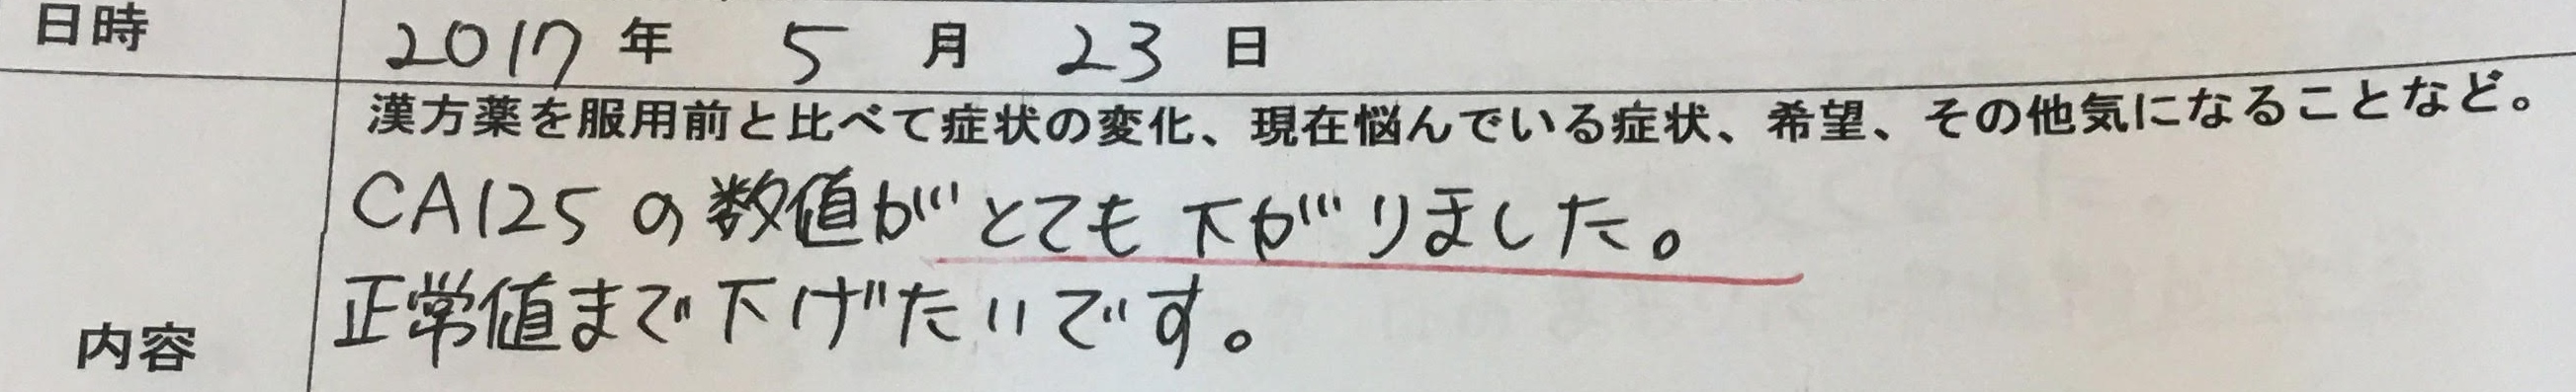 日時 2017年 5月 23日
漢方薬を服用前と比べて症状の変化、現在悩んでいる症状、希望、その他気になることなど。
CA125の数値がとても下がりました。
正常値まで下げたいです。
内容